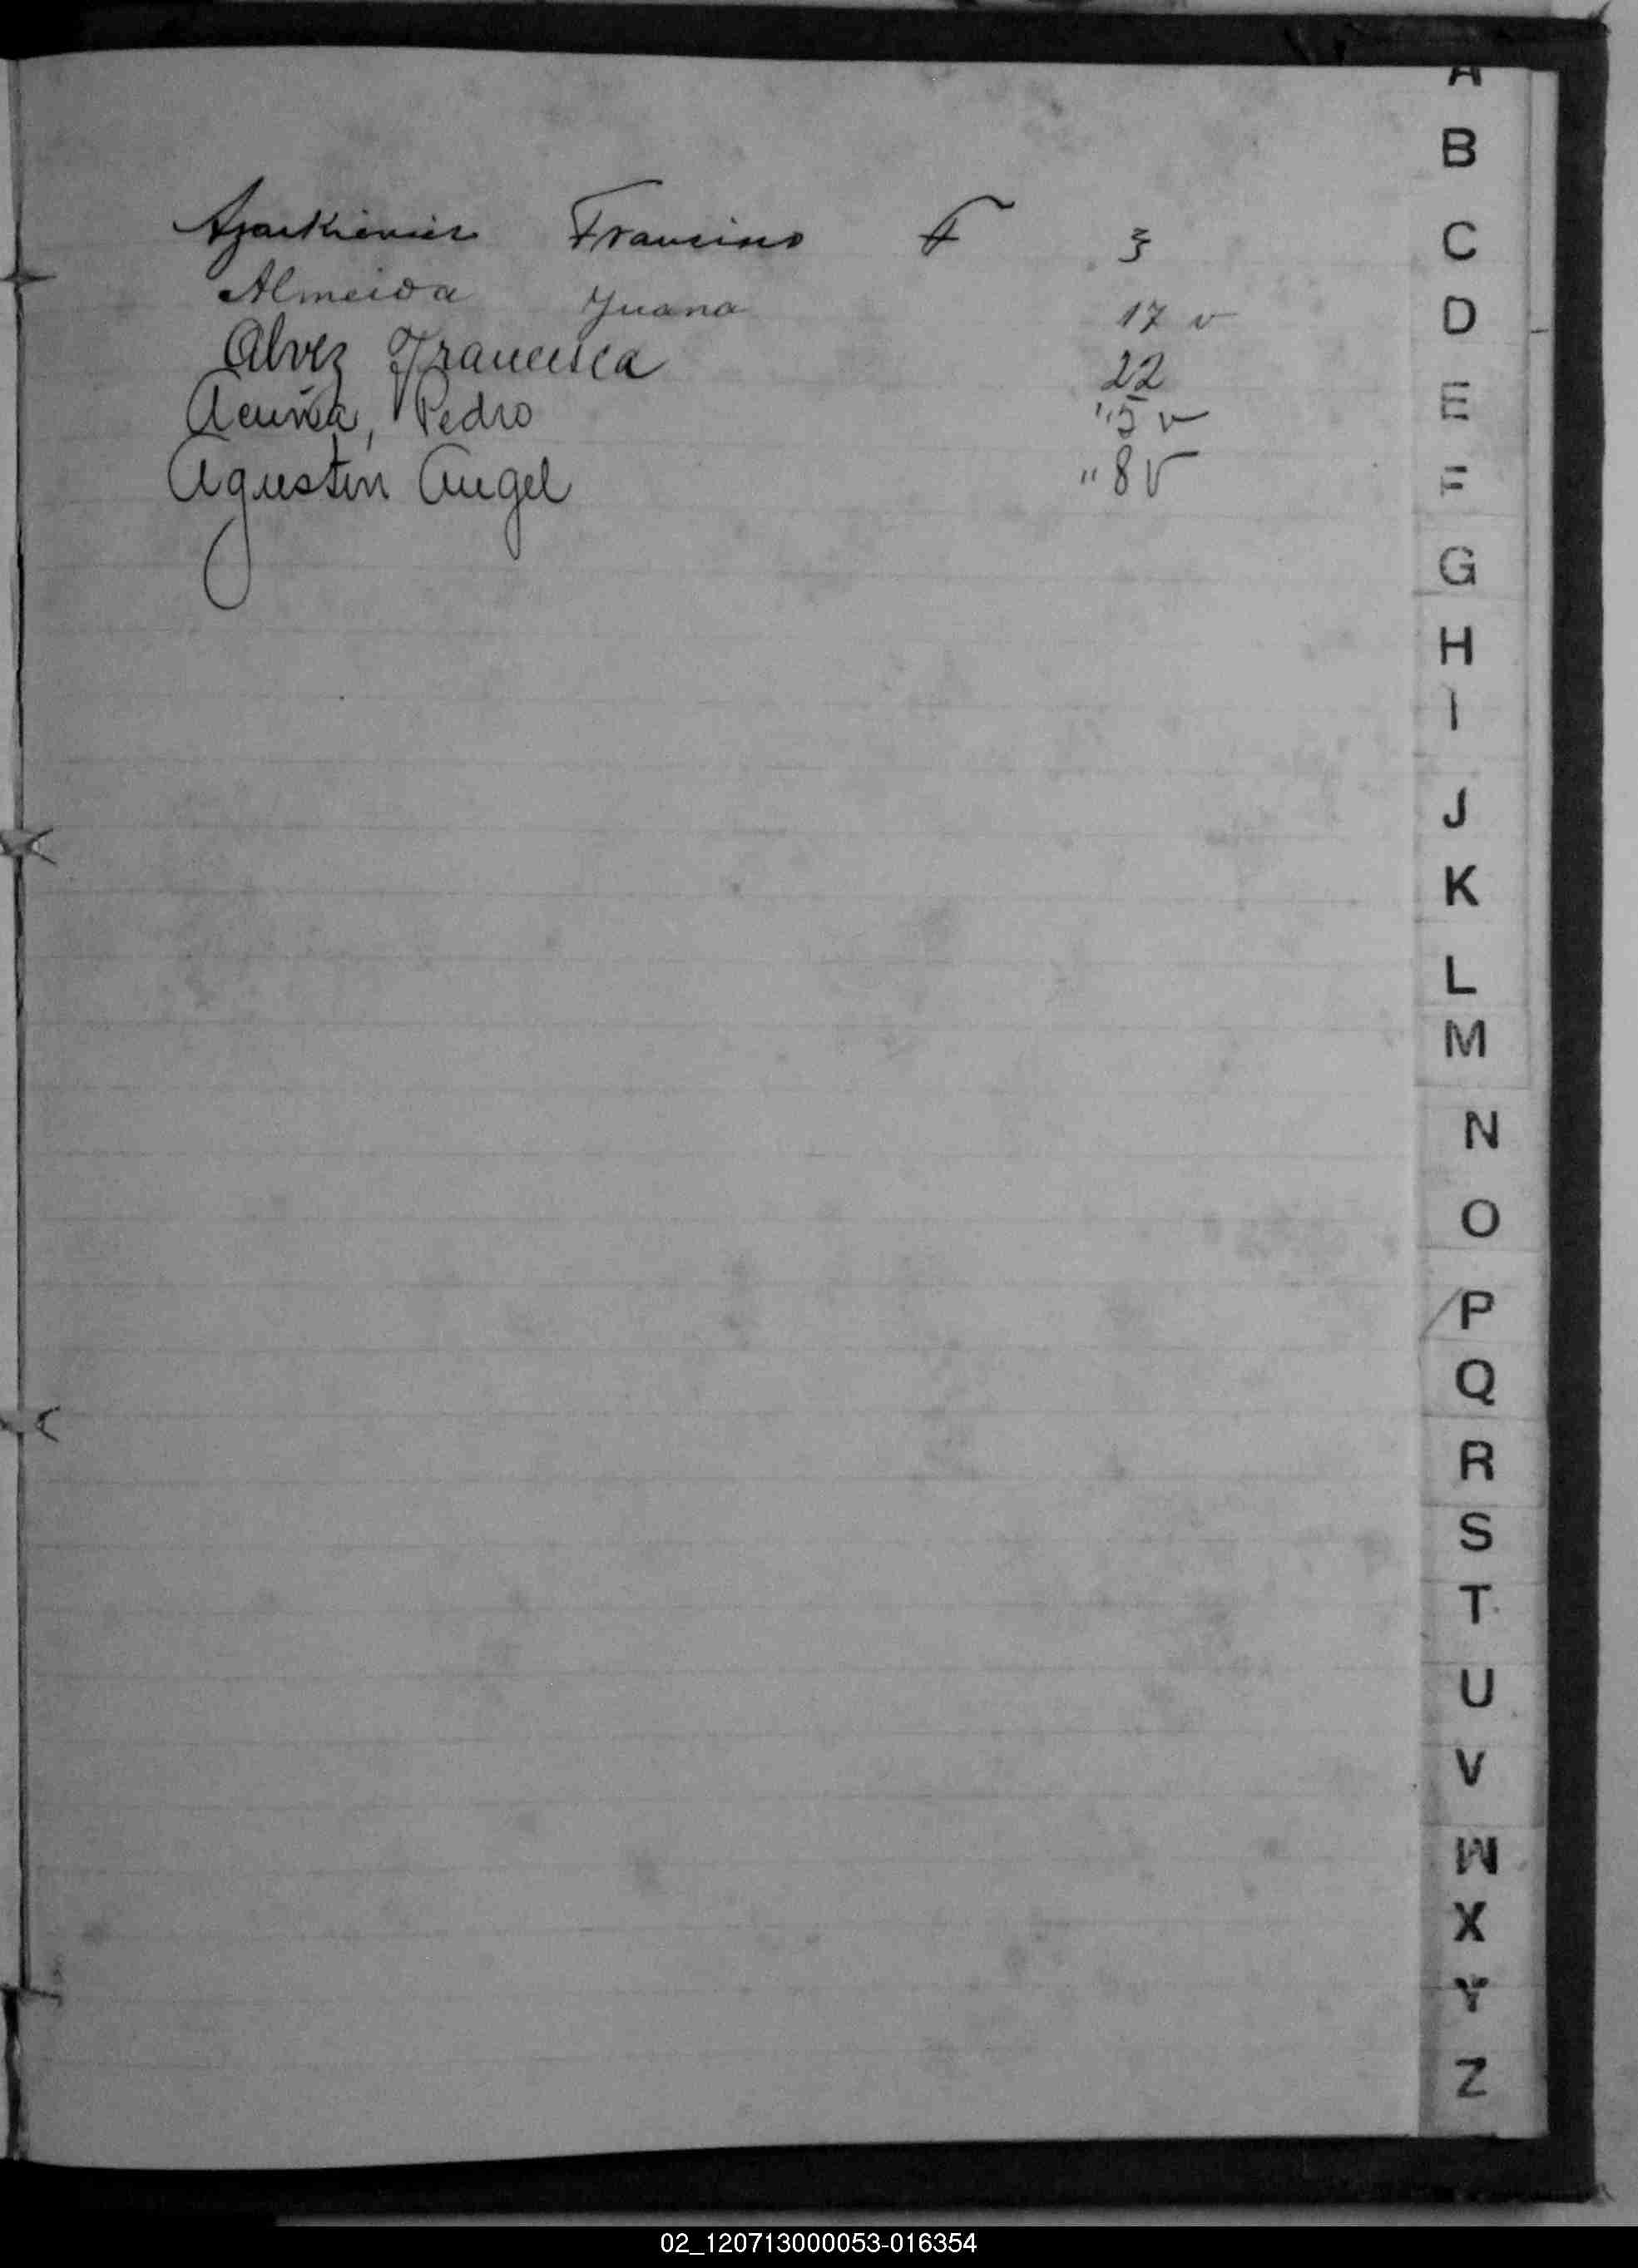 Francisco F 3
Almeida Juana 17 v
Alvez Francisca 22
Acuña, Pedro "5 v
Agustin Angel "8 v
A
B
C
D
E
F
G
H
I
J
K
L
M
N
O
P
Q
R
S
T
U
V
W
X
Y
Z
02_120713000053-016354